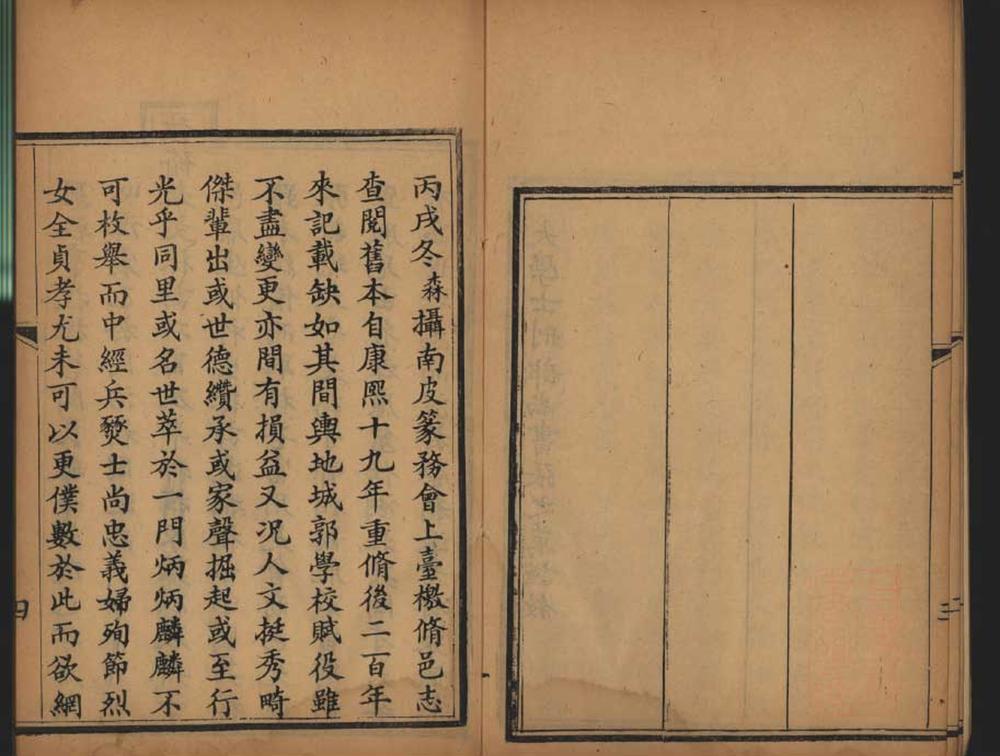 丙戌冬森攝南皮篆務會上臺檄脩邑志
查閱舊本自康熙十九年重脩後二百年
來記載缺如其間輿地城郭學校賦役雖
不盡變更亦間有損益又况人文挺秀畸
傑輩出或世德纘承或家聲掘起或至行
光乎同里或名世萃於一門炳炳麟麟不
可枚舉而中經兵燹士尚忠義婦殉節烈
女全貞孝尤未可以更僕數於此而欲網